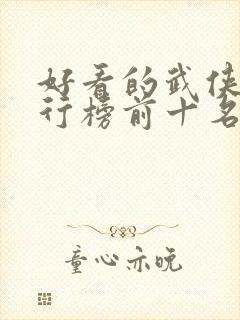 好看的武侠
行榜前十名
童心亦晚